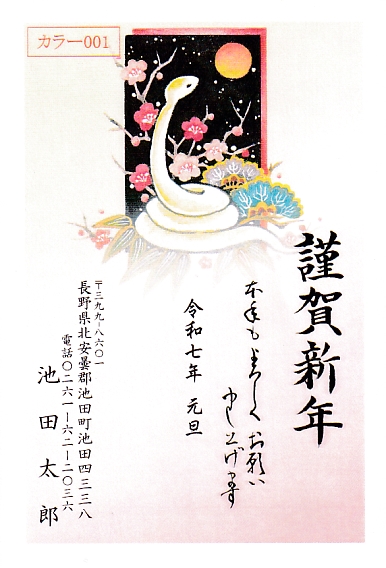 カラー001
謹賀新年
本年もよろしくお願い
申し上げます
令和七年 元旦
〒三九九-八六〇一
長野県北安曇郡池田町池田四三三八
電話〇二六一-六二-二〇三六
池田太郎